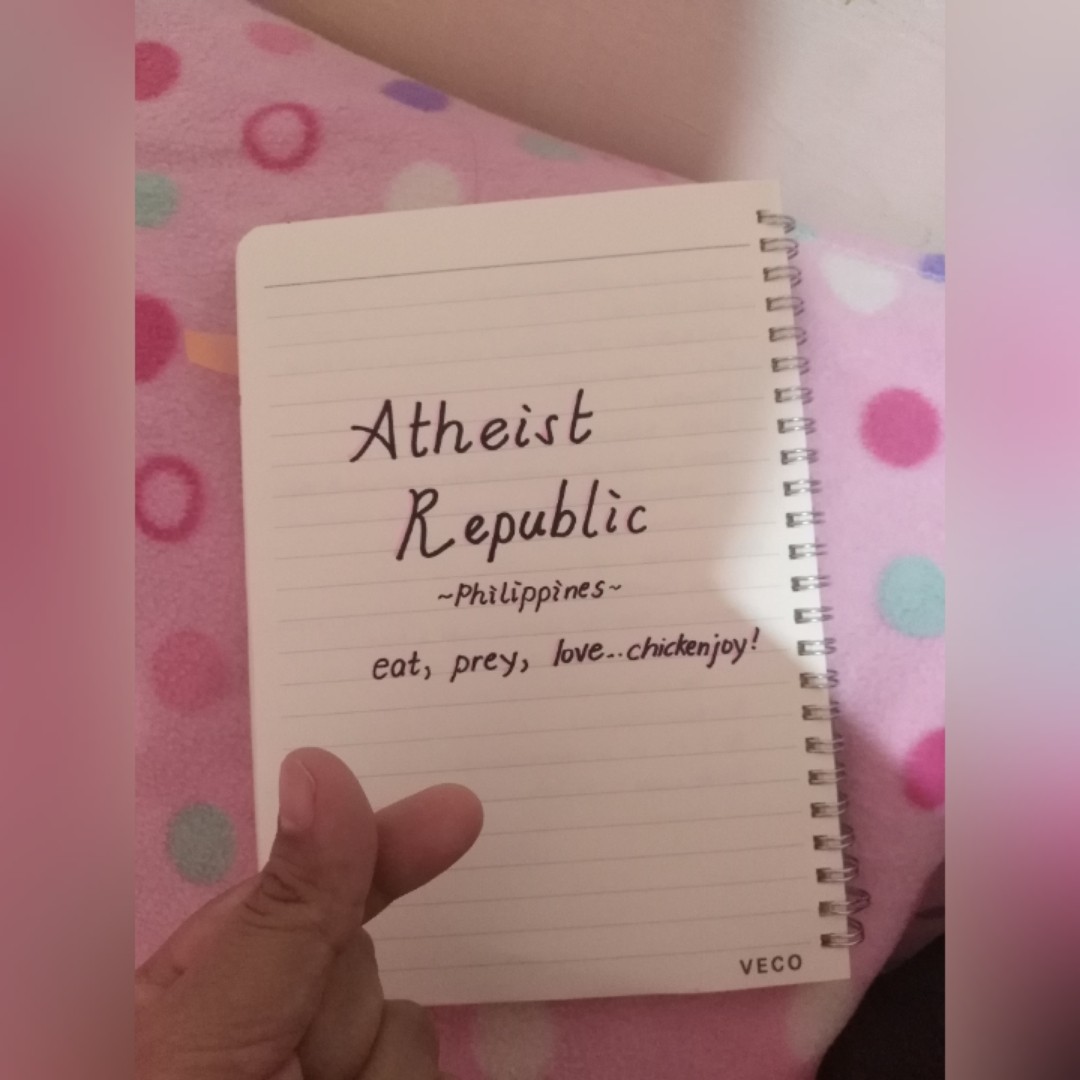 Atheist
Republic
~Philippines~
eat, prey, love..chickenjoy!
VECO